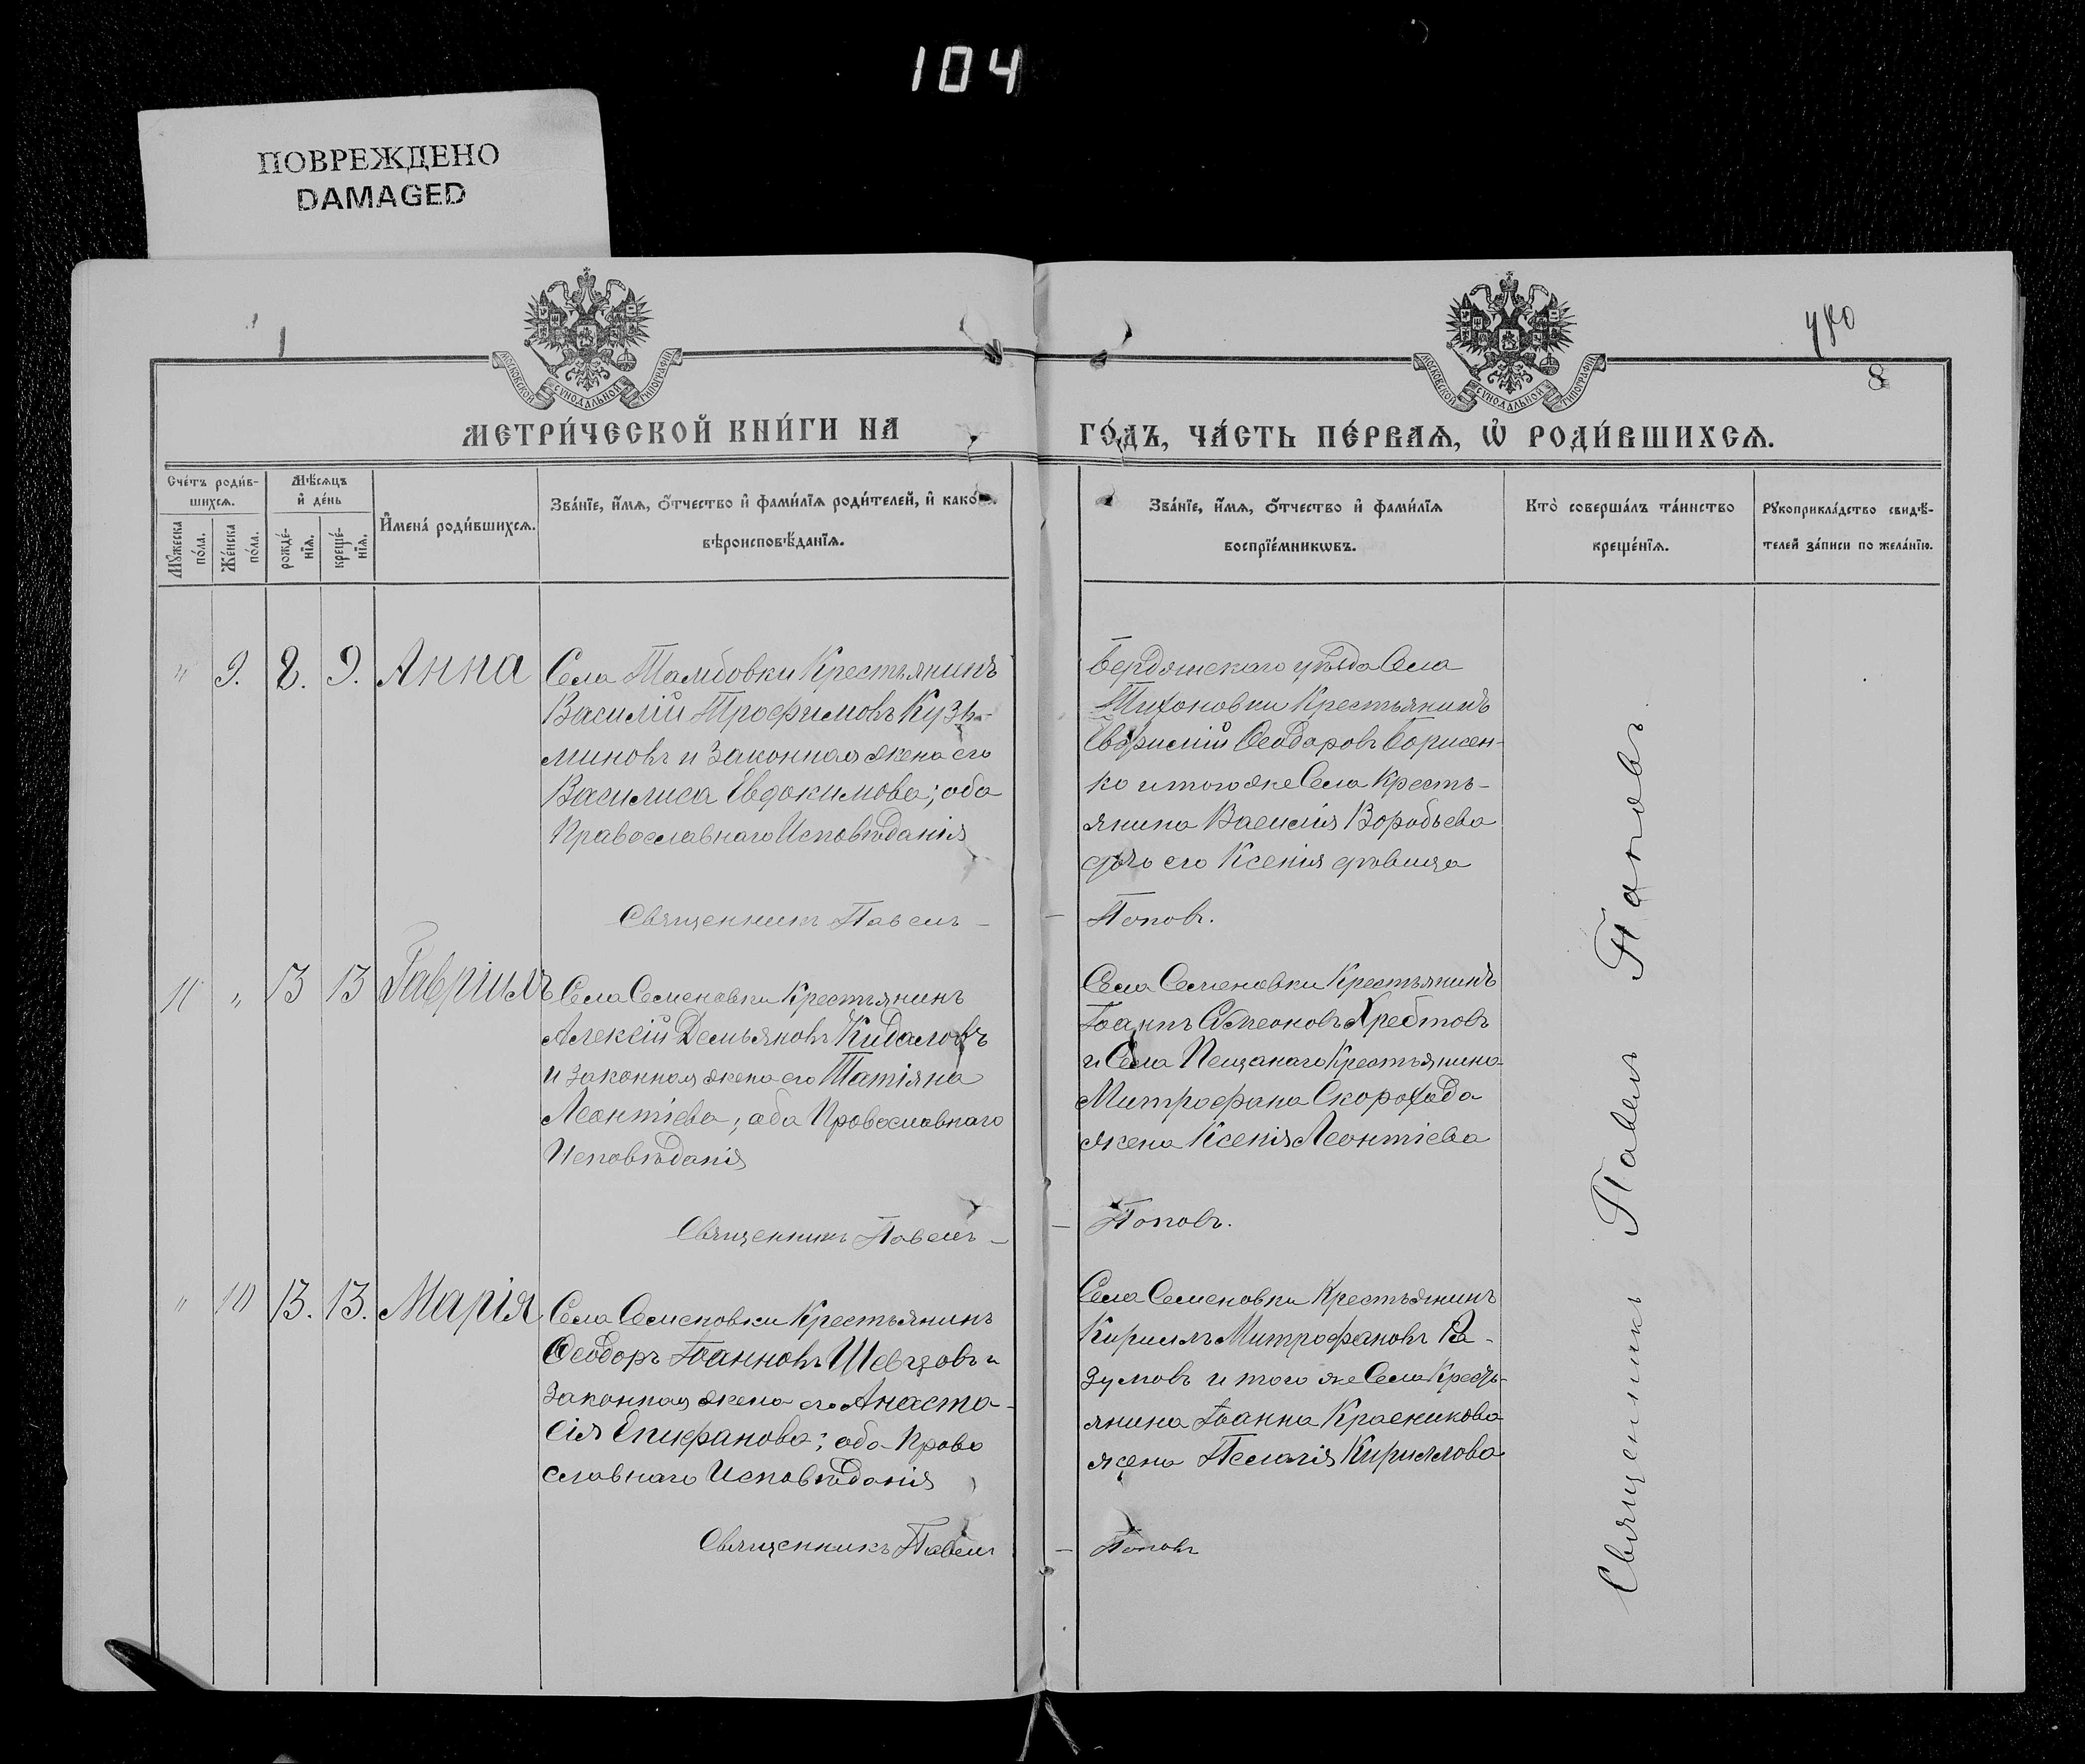 104
ПОВРЕЖДЕНО
DAMAGED
1
МОСКОВСКОЙ СѴНОДАЛЬНОЙ ТИПОГРАФІИ
МОСКОВСКОЙ СѴНОДАЛЬНОЙ ТИПОГРАФІИ
480
8
МЕТРИ́ЧЕСКОЙ КНИ́ГИ НА
ГО́ДЪ, ЧА́СТЬ ПЕ́РВАЯ, Ѡ РОДИ́ВШИХСЯ.
Сче́тъ роди́в-
шихся.
Мѣ́сяцъ
и де́нь
Мꙋжеска
по́ла.
Же́нска
по́ла.
рожде́-
нїя.
креще́-
нїя.
Имена́ роди́вшихся.
Зва́нїе, и́мя, о́тчество и фами́лїя роди́телей, и како́
вѣроисповѣ́данїя.
Зва́нїе, и́мя, о́тчество и фами́лїя
воспрїе́мникѡвъ.
Кто̀ соверша́лъ та́инство
креще́нїя.
Рꙋкоприкла́дство свидѣ́-
телей за́писи по жела́нїю.
" 9. 8. 9. Анна
Села Тамбовки Крестьянинъ
Василій Трофимовъ Кузь-
миновъ и законная жена его
Василиса Евдокимова; оба
Православнаго Исповѣданія
Священникъ Павелъ –
Бердянскаго уѣзда Села
Тихоновки Крестьянинъ
Ѳеодоровъ Борисен-
ко и того же Села Кресть-
янина Василія Воробьева
дочь его Ксенія дѣвица
– Поповъ.
11 " 13 13 Гавріилъ
Села Семеновки Крестьянинъ
Алексій Демьяновъ Кидаловъ
и законная жена его Татіяна
Леонтіева; оба Православнаго
Исповѣданія
Священникъ Павелъ –
Села Семеновки Крестьянинъ
Іоаннъ Симеоновъ Хребтовъ
и Села Песцанаго Крестьянина
Митрофана Скорохода
жена Ксенія Леонтіева
– Поповъ.
" 10 13. 13. Марія
Села Семеновки Крестьянинъ
Ѳеодоръ Іоанновъ Шевцовъ и
законная жена его Анаста-
сія Епифанова; оба Право
славнаго Исповѣданія
Священникъ Павелъ
Села Семеновки Крестьянинъ
Кириллъ Митрофановъ Ра-
зумовъ и того же Села Кресть-
янина Іоанна Красникова
жена Пелагія Кириллова
– Поповъ
Священникъ Павелъ Поповъ.